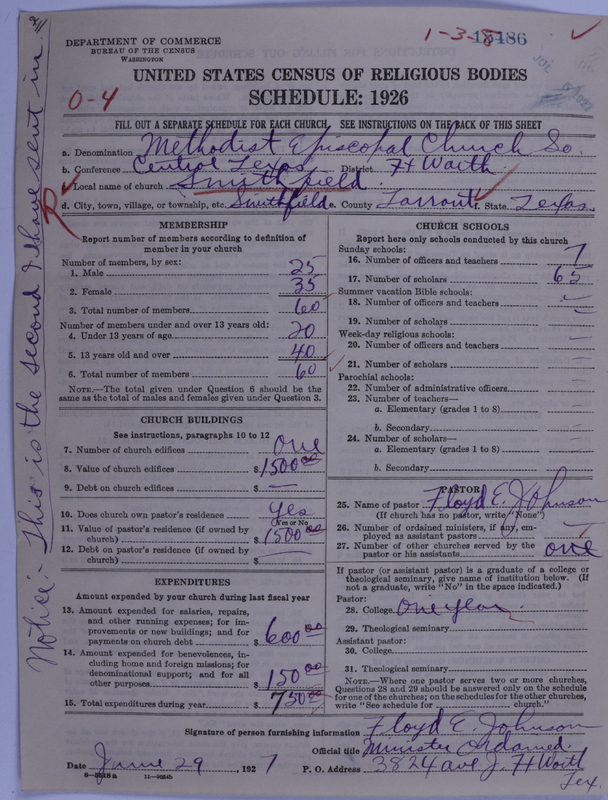 Notice:- This is the second I have sent in.
1-3-8 15486
DEPARTMENT OF COMMERCE
BUREAU OF THE CENSUS
WASHINGTON
UNITED STATES CENSUS OF RELIGIOUS BODIES
SCHEDULE: 1926
0-4
FILL OUT A SEPARATE SCHEDULE FOR EACH CHURCH. SEE INSTRUCTIONS ON THE BACK OF THIS SHEET
a. Denomination Methodist Episcopal Church So
b. Conference Central Texas District Ft Worth
c. Local name of church Smithfield
d. City, town, village, or township, etc. Smithfield e. County Tarrant f. State Texas
MEMBERSHIP
Report number of members according to definition of
member in your church
Number of members, by sex:
1. Male 25
2. Female 35
3. Total number of members 60
Number of members under and over 13 years old:
4. Under 13 years of age 20
5. 13 years old and over 40
6. Total number of members 60
NOTE.—The total given under Question 6 should be the
same as the total of males and females given under Question 3.
CHURCH BUILDINGS
See instructions, paragraphs 10 to 12
7. Number of church edifices One
8. Value of church edifices $1500 00
9. Debt on church edifices $ —
10. Does church own pastor's residence yes
(Yes or No)
11. Value of pastor's residence (if owned by
church) $1500 00
12. Debt on pastor's residence (if owned by
church) $ —
EXPENDITURES
Amount expended by your church during last fiscal year
13. Amount expended for salaries, repairs,
and other running expenses; for im-
provements or new buildings; and for
payments on church debt $ 600 00
14. Amount expended for benevolences, in-
cluding home and foreign missions; for
denominational support; and for all
other purposes $ 150 00
15. Total expenditures during year $ 750 00
CHURCH SCHOOLS
Report here only schools conducted by this church
Sunday schools:
16. Number of officers and teachers 7
17. Number of scholars 65
Summer vacation Bible schools:
18. Number of officers and teachers —
19. Number of scholars —
Week-day religious schools:
20. Number of officers and teachers —
21. Number of scholars —
Parochial schools:
22. Number of administrative officers —
23. Number of teachers—
a. Elementary (grades 1 to 8) —
b. Secondary —
24. Number of scholars—
a. Elementary (grades 1 to 8) —
b. Secondary —
PASTOR
25. Name of pastor Floyd E. Johnson
(If church has no pastor, write "None")
26. Number of ordained ministers, if any, em-
ployed as assistant pastors —
27. Number of other churches served by the
pastor or his assistants one
If pastor (or assistant pastor) is a graduate of a college or
theological seminary, give name of institution below. (If
not a graduate, write "No" in the space indicated.)
Pastor:
28. College One year
29. Theological seminary
Assistant pastor:
30. College
31. Theological seminary
NOTE.—Where one pastor serves two or more churches,
Questions 28 and 29 should be answered only on the schedule
for one of the churches; on the schedules for the other churches,
write "See schedule for church."
Signature of person furnishing information Floyd E. Johnson
Official title Minister Ordained.
Date June 29, 1927 P. O. Address 3824 Ave J. Ft Worth
Tex.